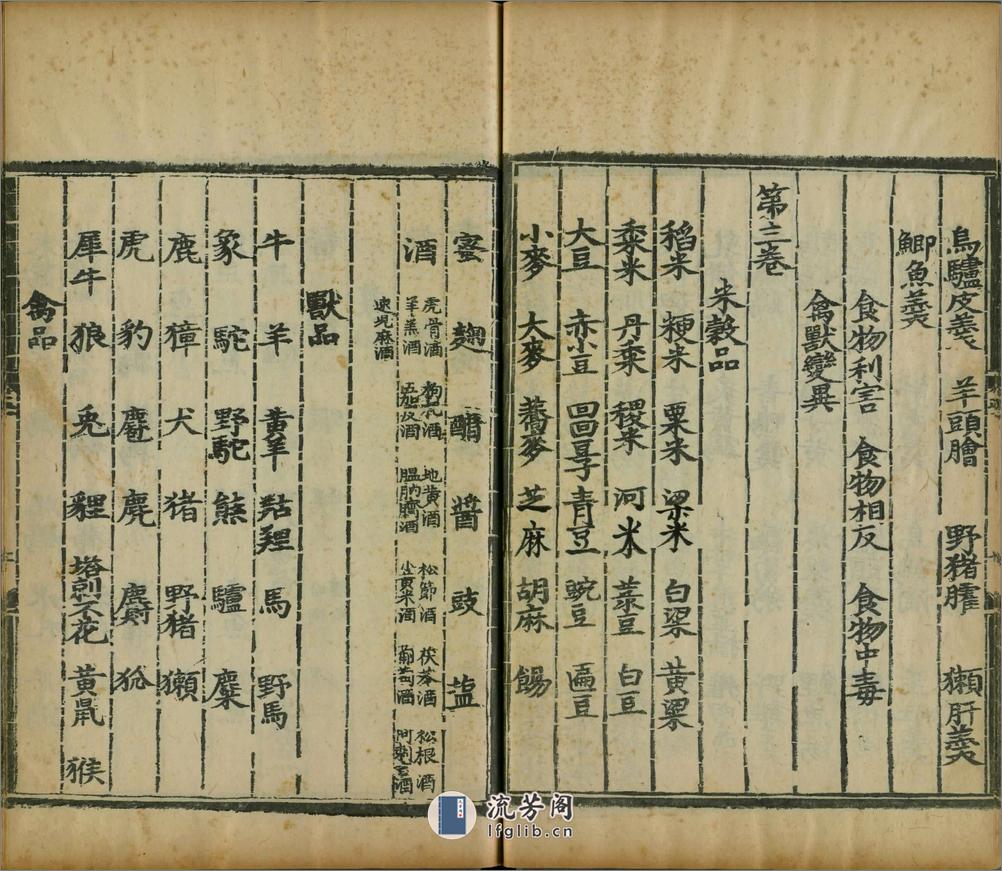 烏驢皮羹 羊頭膾 野猪臛 獺肝羹
鯽魚羹
食物利害 食物相反 食物中毒
禽獸變異
第三卷
米穀品
稻米 粳米 粟米 梁米 白梁 黃梁
黍米 丹黍 稷米 河米 菉豆 白豆
大豆 赤小豆 回回豆子 青豆 豌豆 匾豆
小麥 大麥 蕎麥 芝麻 胡麻 餳
蜜 麯 醋 醬 豉 塩
酒 虎骨酒 枸杞酒 地黃酒 松節酒 茯苓酒 松根酒
羊羔酒 五加皮酒 膃肭臍酒 小黃米酒 葡萄酒 阿剌吉酒
速兒麻酒
獸品
牛 羊 黃羊 羖䍽 馬 野馬
象 駝 野駝 熊 驢 麋
鹿 獐 犬 猪 野猪 獺
虎 豹 麅 麂 麝 狐
犀牛 狼 兎 貍 塔剌不花 黃鼠 猴
禽品
流芳阁
lfglib.cn